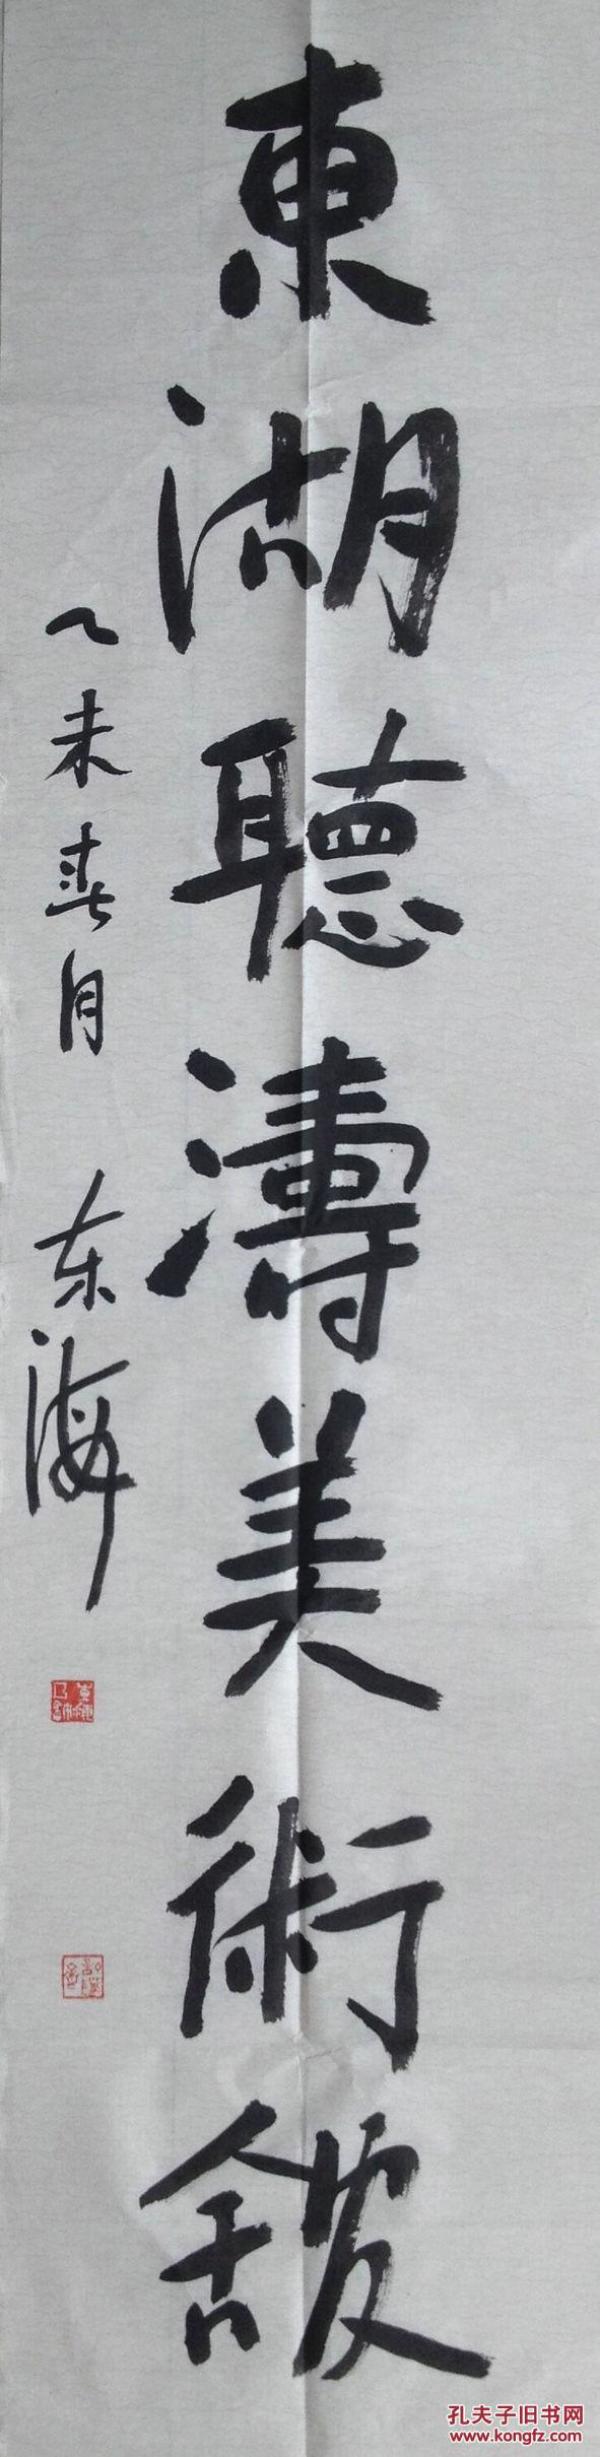 東湖聽濤美術
乙未春月 东海
孔夫子旧书网
www.kongfz.com